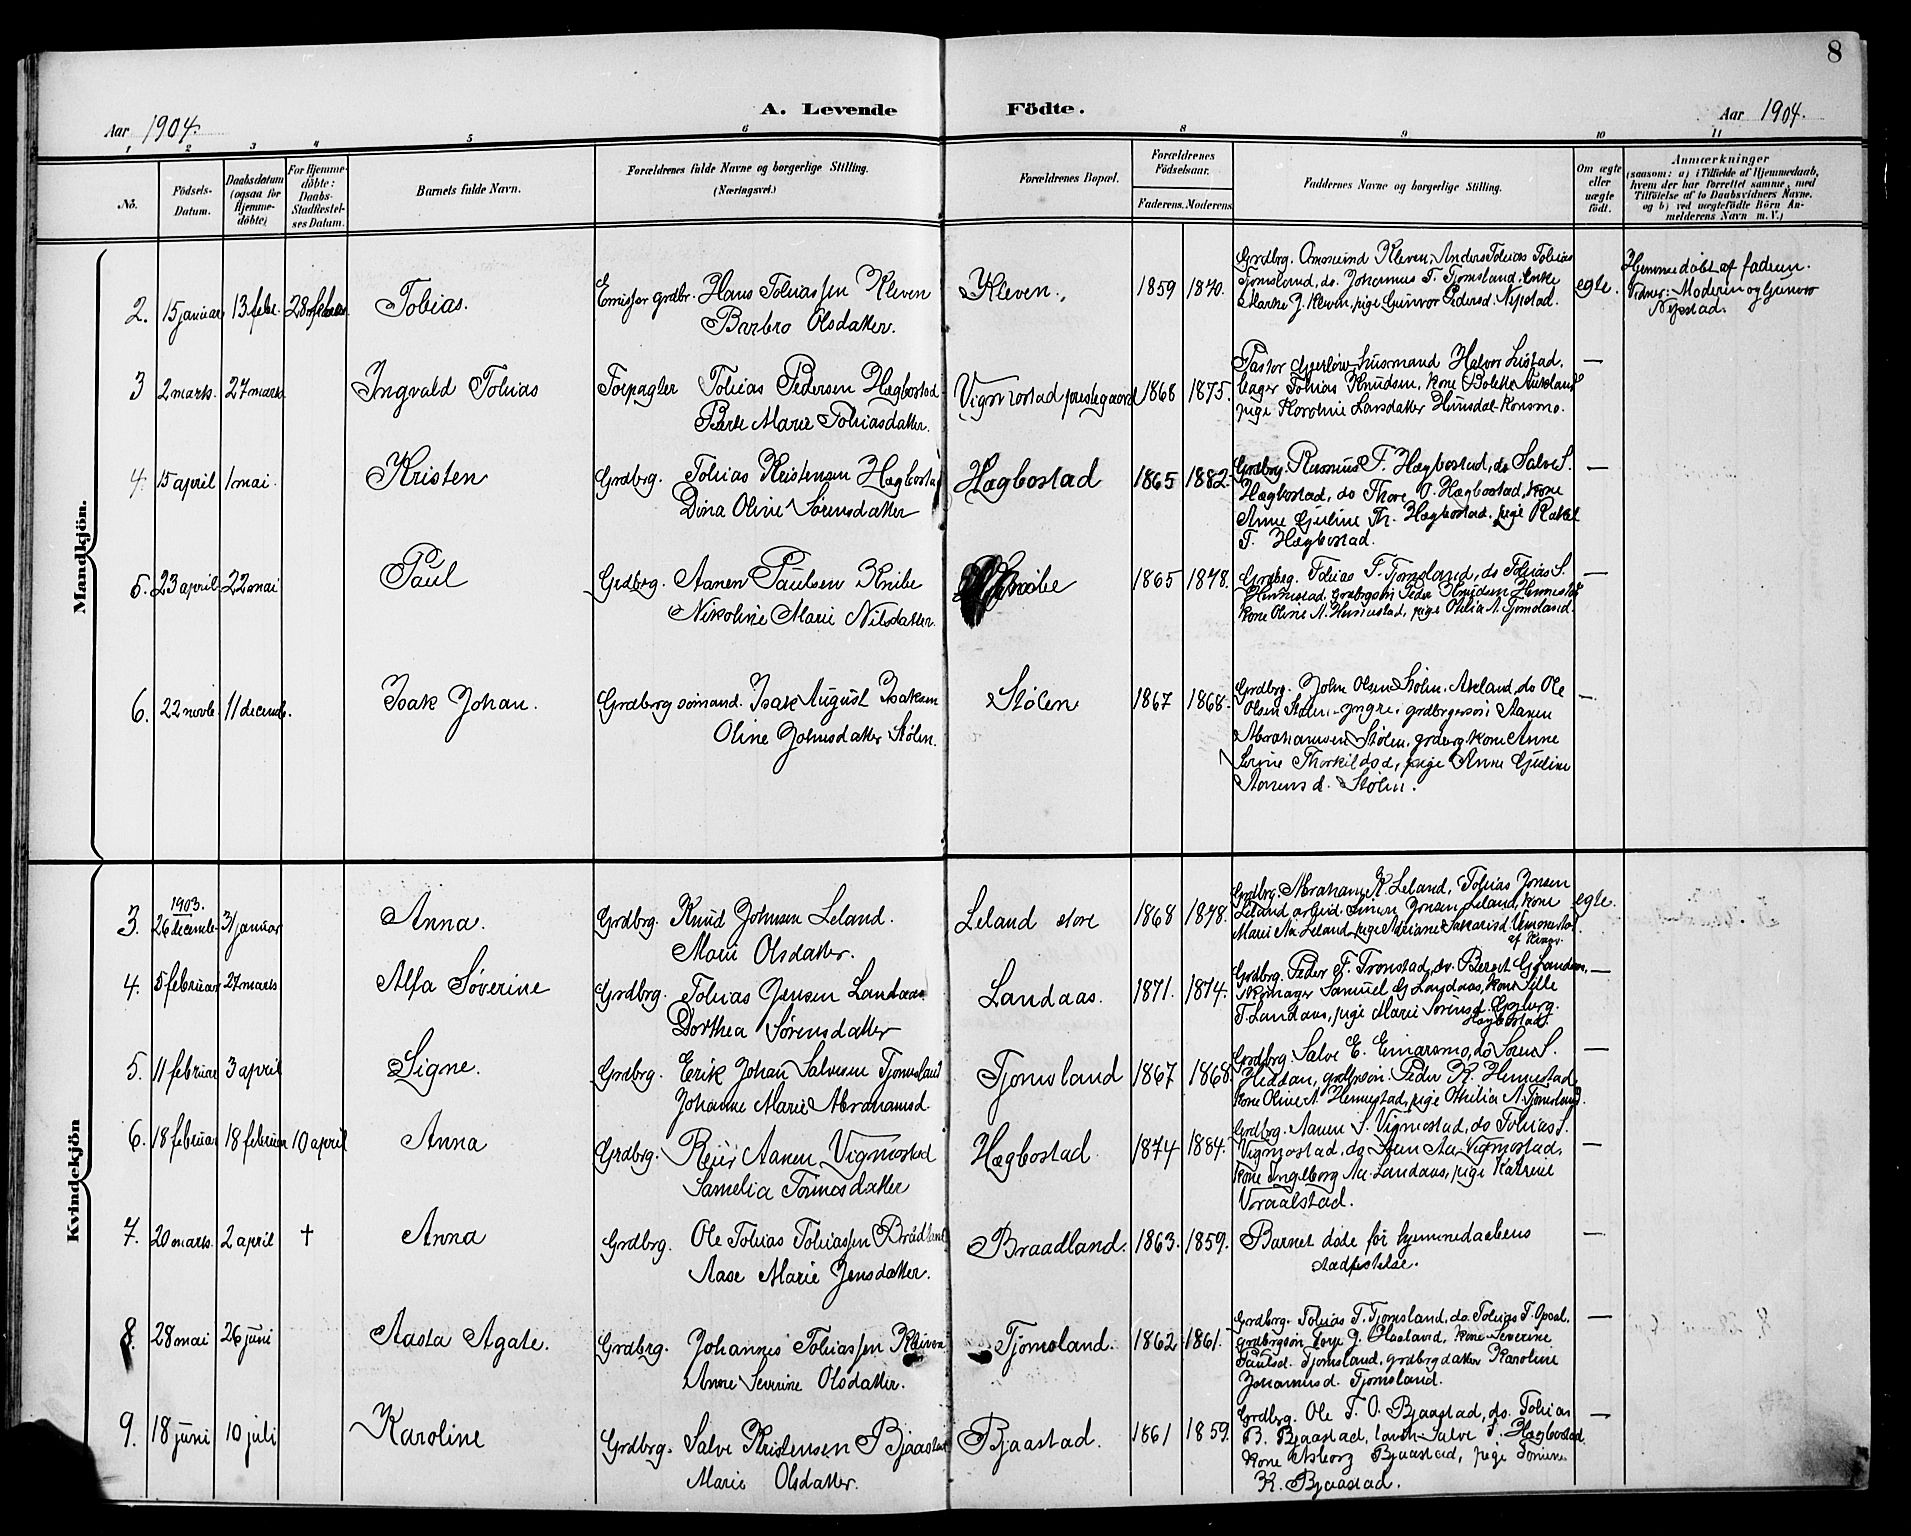 8
A. Levende Födte.
Aar 1904.
Aar 1904.
1 2 3 4 5 6 8 9 10 11
No.
Födsels-
Datum.
Daabsdatum
(ogsaa for
Hjemme-
döbte)
For Hjemme-
döbte:
Daabs-
Stadfæstel-
ses Datum.
Barnets fulde Navn.
Forældrenes fulde Navne og borgerlige Stilling.
(Næringsvei.)
Forældrenes Bopæl.
Forældrenes
Födselsaar.
Faderens. Moderens.
Faddernes Navne og borgerlige Stilling.
Om ægte
eller
uægte
födt.
Anmærkninger
(saasom: a) i Tilfælde af Hjemmedaab,
hvem der har forrettet samme, med
Tilföielse af to Daabsvidners Navne.
og b) ved uægtefödte Börn An-
melderens Navn m. V.)
Mandkjön.
2. 15 januar 13 febr. 28 februar Tobias.
Emissær grdbr. Hans Tobiassen Kleven
Barbro Olsdatter.
Kleven. 1859 1870.
Grdbrg. Omsund Kleven, Anders Tobias Tobias
Tjomsland, do. Johannes T. Tjomsland, Enke
Marthe J. Kleven, pige Gunvor Pedersd. Nypstad.
egte.
Hjemmedøbt af faderen.
Vidner: Moderen og Gunvor
Nypstad.
3 2 marts. 27 marts Ingvald Tobias
Forpagter Tobias Pedersen Hægbostad
Berte Marie Tobiasdatter.
Vigmostad prestegaard 1868 1875.
Pastor Gjerløw, husmand Halvor Listad,
bager Tobias Knudsen, kone Bolette Aukland
pige Karoline Larsdatter Hunsdal-Konsmo.
—
4. 15 april 1 mai. Kristen
Grdbrg. Tobias Kristensen Hægbostad
Dina Oline Sørensdatter
Hægbostad 1865 1882.
Grdbrg. Rasmus T. Hægbostad, do Salve S.
Hægbostad, do Thore O. Hægbostad, kone
Anne Gjuline Th. Hægbostad, pige Rakel
T. Hægbostad.
—
5. 23 april 22 mai Paul
Grdbrg. Aanen Paulsen Knibe
Nikoline Marie Nilsdatter.
Knibe 1865 1878.
Grdbrg. Tobias T. Tjomsland, do Tobias S.
Hennestad, grdbrgsøn Peder Knudsen Hennestad
kone Oline A. Hennestad, pige Otilia A. Tjomsland.
—
6. 22 novbr 11 decemb. Isak Johan.
Grdbrg sømand. Isak August Isaksen
Oline Johnsdatter Stølen.
Stølen 1867 1868.
Grdbrg. John Olsen Stølen, Aveland, do Ole
Olsen Stølen, yngre, grdbrgersøn Aanen
Abrahamsen Stølen, grdbrg. kone Anne
Serine Thorkildsd, pige Anne Gjuline
Aanensd. Stølen.
—
Kvindekjön
3. 1903.
26 decembe 31 januar Anna.
Grdbrg. Knud Johnsen Leland.
Mari Olsdatter.
Leland store 1868 1878.
Grdbrg. Abraham K. Leland, Tobias Jonsen
Leland, arbeid. Simon Jonsen Leland, kone
Marie Aa. Leland, pige Adriane Sakarisd.
egte.
4. 5 februar 27 marts Alfa Søverine
Grdbrg. Tobias Jensen Landaas
Dorthea Sørensdatter
Landaas. 1871. 1874.
Grdbrg. Peder F. Tronstad, do. Berent G. Landaas,
skomager Samuel G. Landaas, kone Sille
T. Landaas, pige Marie Sørensd.
Hægbostad.
—
5. 11 februar 3 april Signe.
Grdbrg. Erik Johan Salvesen Tjomsland
Johanne Marie Abrahamsd.
Tjomsland 1867 1868
Grdbrg. Salve E. Einarsmo, do Søren S.
Heddan, grdbrsøn. Peder K. Hennestad,
kone Oline A. Hennestad, pige Othilia A. Tjomsland.
—
6. 18 februar 18 februar 10 april Anna
Grdbrg. Reier Aanen. Vigmostad
Samelia Tønnesdatter
Hægbostad. 1874 1884.
Grdbrg. Aanen S. Vigmostad, do Tobias S.
Vigmostad, do Sven Aa. Vigmostad,
kone Ingeborg Aa. Landaas, pige Katrine
Vraalstad.
—
7. 20 marts. 2 april † Anna
Grdbrg. Ole Tobias Tobiassen Brådland
Aase Marie Jensdatter.
Braadland. 1863. 1859.
Barnet døde før hjemmedaabens
stadfæstelse.
—
8. 28 mai 26 juni Aasta Agate.
Grdbrg. Johannes Tobiassen Kleven
Anne Severine Olsdatter.
Tjomsland. 1862 1861.
Grdbrg. Tobias T. Tjomsland, do. Tobias T. Opsal,
grdbrgsøn Tore J. kone Severine
Paulsd. Tjomsland, grdbrgdatter Karoline
Johannesd. Tjomsland.
—
9. 18 juni 10 juli Karoline
Grdbrg. Salve Kristensen Bjaastad
Marie Olsdatter.
Bjaastad. 1861 1859.
Grdbrg. Ole T. O. Bjaastad, do. Tobias
B. Bjaastad, Salve S. Hægbostad
kone Asborg Bjaastad, pige Tomine
K. Bjaastad.
—